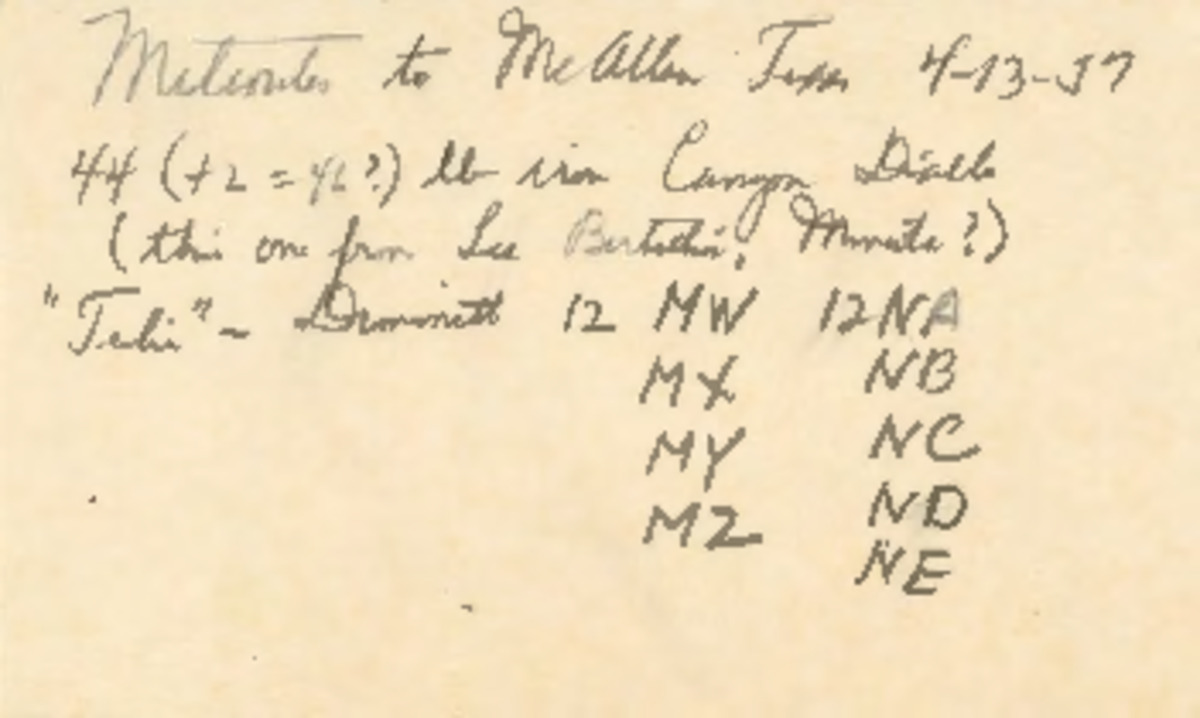 Meteorites to McAllen Texas 4-13-57
44 (+2 = 46?) lb iron Canyon Diablo
(this one from Lee ?)
" " - Dimmitt 12 MW 12 NA
MX NB
MY NC
MZ ND
NE